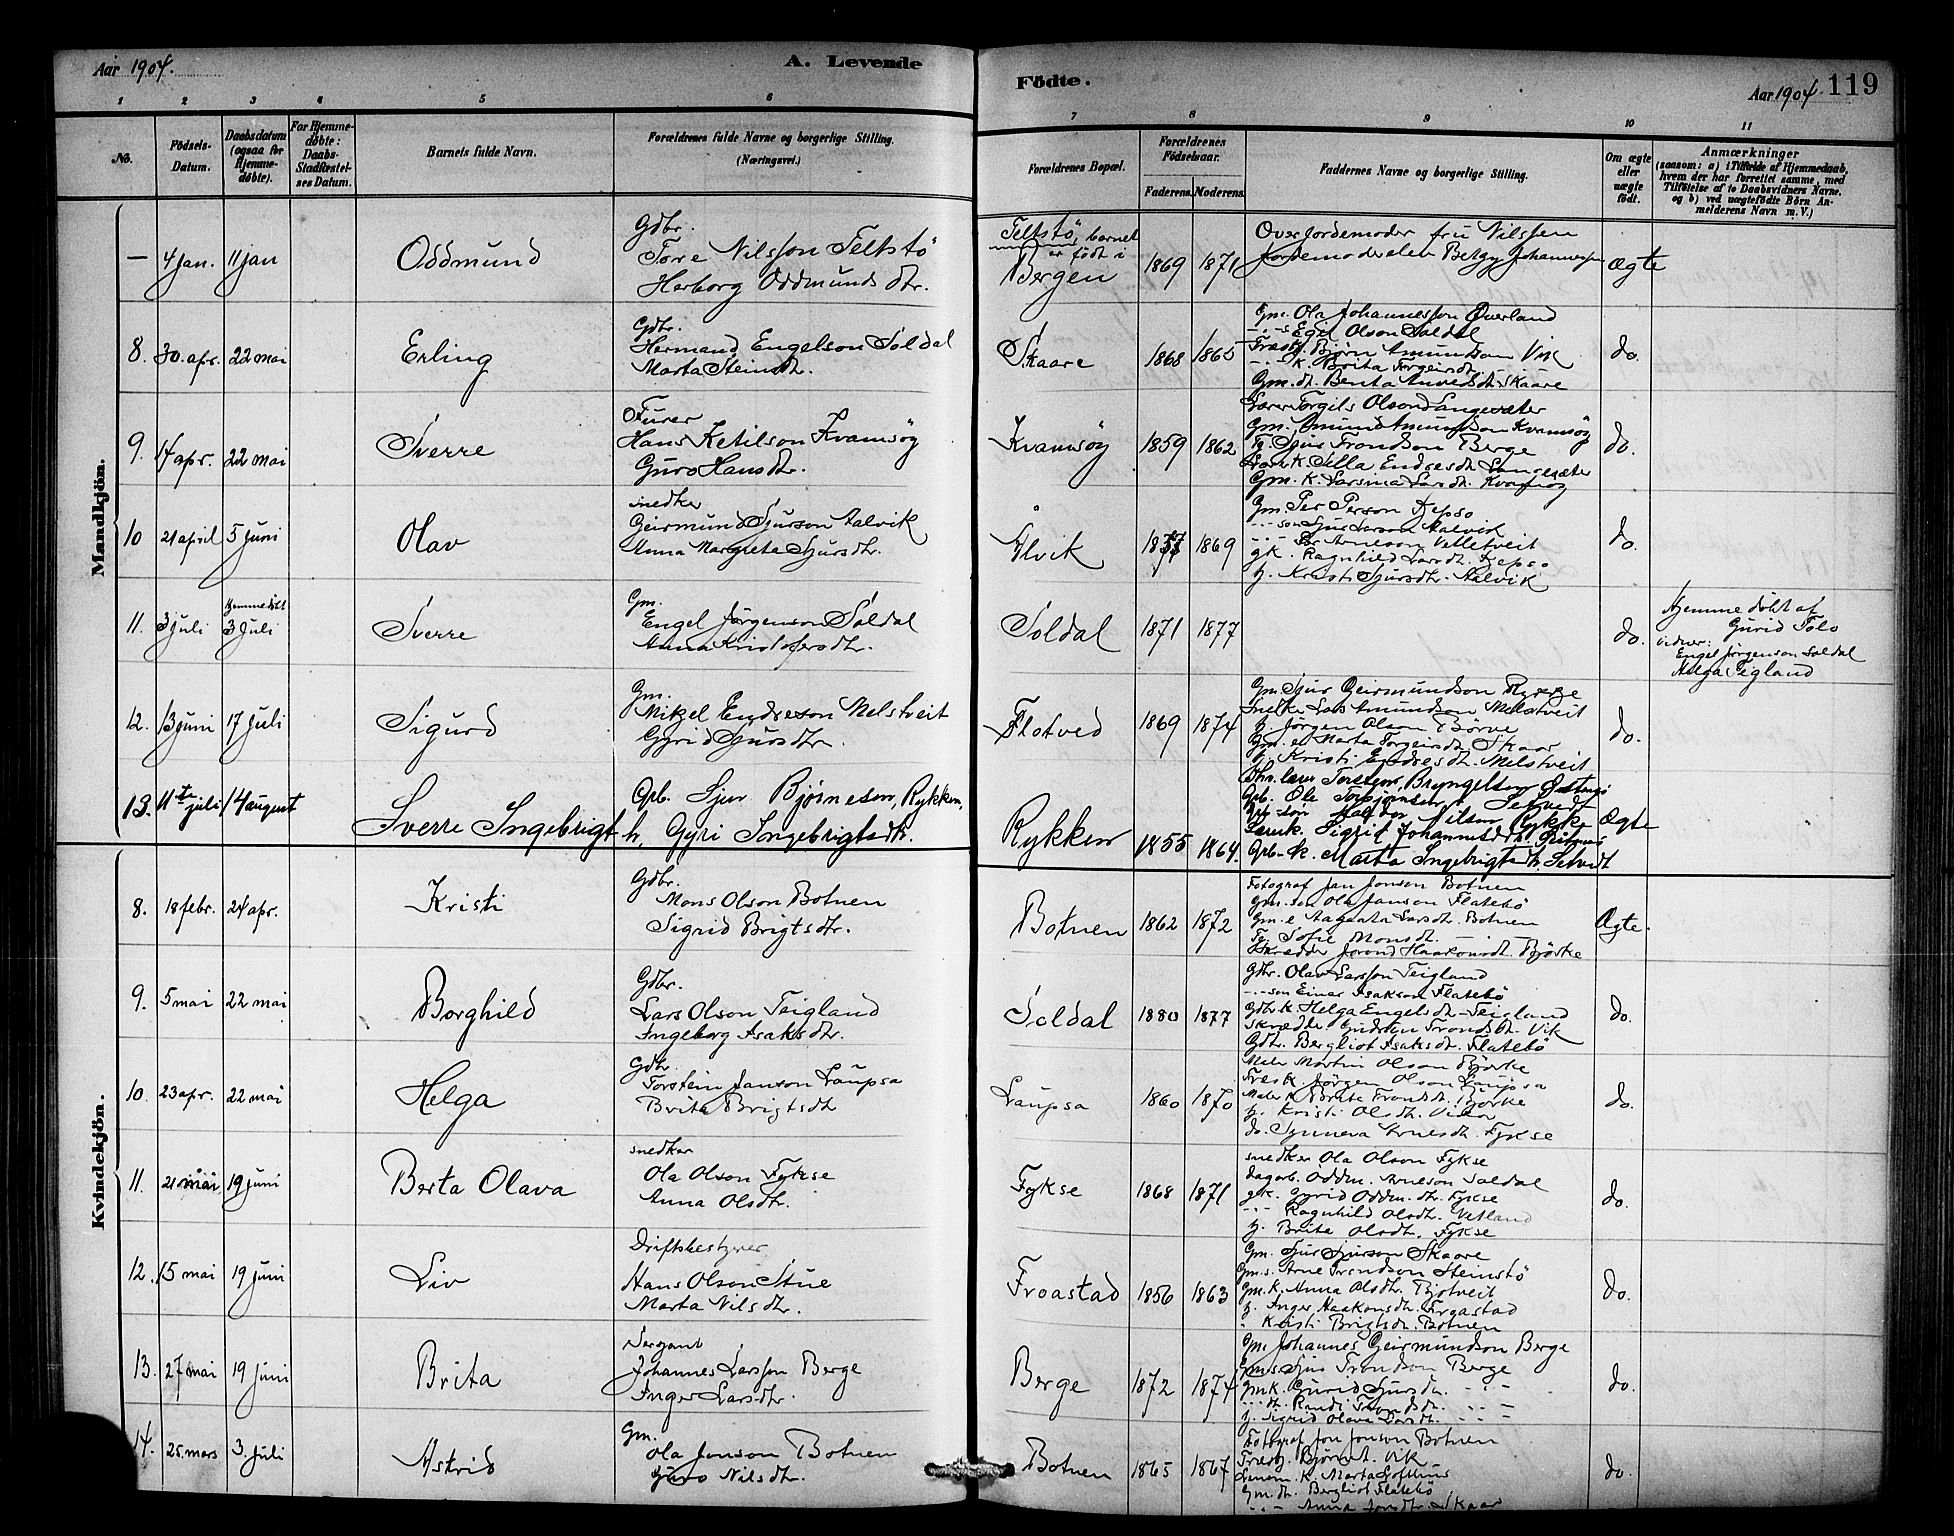 Aar 1904.
A. Levende
Födte.
Aar 1904.
119
1 2 3 4 5 6 7 8 9 10 11
No.
Födsels-Datum.
Daabsdatum (ogsaa for Hjemme-døbte).
For Hjemme-døbte: Daabs-Stadfæstel-ses Datum.
Barnets fulde Navn.
Forældrenes fulde Navne og borgerlige Stilling.
(Næringsvei.)
Forældrenes Bopæl.
Forældrenes Födselsaar.
Faderens.
Moderens.
Faddernes Navne og borgerlige Stilling.
Om ægte eller uægte födt.
Anmærkninger
(saasom: a) i Tilfælde af Hjemmedaab,
hvem der har forrettet samme, med
Tilföielse af to Daabsvidners Navne,
og b) ved uægtefödte Börn An-
melderens Navn m. V.)
Mandkjön.
— 4 jan. 11 jan Oddmund
Gdbr.
Tore Nilsson Teltstö
Herborg Oddmundsdtr.
Teltstö, barnet
er født i
Bergen 1869 1871
Overjordemoder fru Nilssen
Jordemoderelev Betzy Johannesen
ægte
8. 30. apr. 22 mai Erling
Gdbr.
Hermand Engelson Soldal
Marta Steinsdtr.
Skaare 1868 1865
Gm. Ola Johannesson Overland
Egil Olson Soldal
Bjørn Amundson Vik
Brita Torgeirsdtr.
Gm. dt. Berita Skaare
do.
9. 14 apr. 22 mai Sverre
Furer
Hans Ketilson Kvamsøy
Guro Hansdtr.
Kvamsøy 1859 1862
Lærer Torgils Olson Langesæter
Gm. Amund Amundson Kvamsøy
Sjur Trondson Berge
Silla Endresdt. Langesæter
Gm. k. Larsina Larsdt. Kvamsøy
do.
10 21 april 5 juni Olav
snedker
Geirmund Sjurson Aalvik
Anna Margreta Sjursdtr.
Ålvik 1869
Gm. Per Person
son Sjur Larson Aalvik
Arneson Velletveit
gk. Ragnhild Larsdt.
p. Kristi Sjursdtr. Aalvik
do.
11. 3 juli
Hjemmedöbt
3 juli Sverre
Gm.
Engel Jørgenson Soldal
Anna Kristofersdtr.
Soldal 1871 1877
do.
Hjemmedöbt af
Gurid Tolo
vidner:
Engel Jørgenson Soldal
Helga Teigland
12. 13 juni 17 juli Sigurd
Gm.
Mikel Endreson Melstveit
Gyrid Sjursdtr.
Flotved 1869 1874
Gm. Sjur Geirmundson Rykke
Lars Amundson Melstveit
Jörgen Olson Börve
Gm. e. Marta Torgeirsdt. Skaar
p. Kristi Endresdt. Melstveit
do.
13. 11te juli 14 august Sverre Ingebrigt
Grb. Sjur Bjørneson, Rykken,
h. Gyri Ingebrigtsdt.
Rykken 1855 1864.
lærer Torstein Bryngelson Østensø
Grb. Ole Torbjørnsen Setvedt
Grb-søn Haldor Nilson Rykke
Sigrid Johannesdt.
Grb-k. Marta Ingebrigtsdt. Setvedt
Ægte
Kvindekjön.
8. 18 febr. 24 apr. Kristi
Gdbr.
Mons Olson Botnen
Sigrid Brigtsdtr.
Botnen 1862 1872
Fotograf Jan Jonson Botnen
Gm. son Ola Janson Flatebö
Gm. e Aagaata Larsdtr. Botnen
Sofie Monsdt.
Skredder Jorond Haakonsdt. Björke
Ægte.
9. 5 mai 22 mai Borghild
Gdbr.
Lars Olson Teigland
Ingeborg Isaksdtr.
Soldal 1880 1877
Gdbr. Olav Larsson Teigland
son Einar Isakson Flatebö
Gdbr k. Helga Engelsdt. Teigland
Skrædder Gudrun Trondsdt. Vik
Gdtr. Bergliot Isaksdt. Flatebö
do.
10. 23 apr. 22 mai Helga
Gdbr.
Torstein Janson Laupsa
Brita Brigtsdt
Laupsa 1860 1870
Maler Martin Olson Björke
Jörgen Olson Laupsa
Maler k Brita Trondsdt. Björke
p. Kristi Olsdt. Vikør
do. Synneva Arnesdt. Fykse
do.
11. 21 mai 19 juni Berta Olava
snedker
Ola Olson Fykse
Anna Olsdtr.
Fykse 1868 1871
snedker Ola Olson Fykse
dagarb. Oddm. Arneson Soldal
gk. Gyrid Oddm.dtr. Fykse
Ragnhild Olsdtr. Vetland
p. Brita Olsdtr. Fykse
do.
12. 15 mai 19 juni Liv
Driftsbestyrer
Hans Olson Stue
Marta Nilsdtr.
Froastad 1856 1863
Gm. Sjur Sjurson Skaare
Gm. s. Arne Trondson Steinstö
Gm. k. Anna Olsdtr. Bjotveit
p. Inger Haakonsdt. Froastad
Kristi Brigtsdt. Botnen
do.
13. 27 mai 19 juni Brita
Sergeant
Johannes Larsson Berge
Inger Larsdtr
Berge 1872 1874
Gm. Johannes Geirmundson Berge
Gm. s. Sjur Trondson Berge
Gmk. Gurid Sjursdt.
dt. Randi Trondsdt.
p. Sigrid Olava Larsdt.
do.
14. 25 mars 3 juli Astrid
Gm.
Ola Jonson Botnen
Guro Nilsdtr.
Botnen 1865 1867
Fotograf Jon Jonson Botnen
Bjørn A. Vik
k. Marta Lofthus
Gm. dt. Bergliot Flatebö
Anna Jonsdtr. Skaar
do.